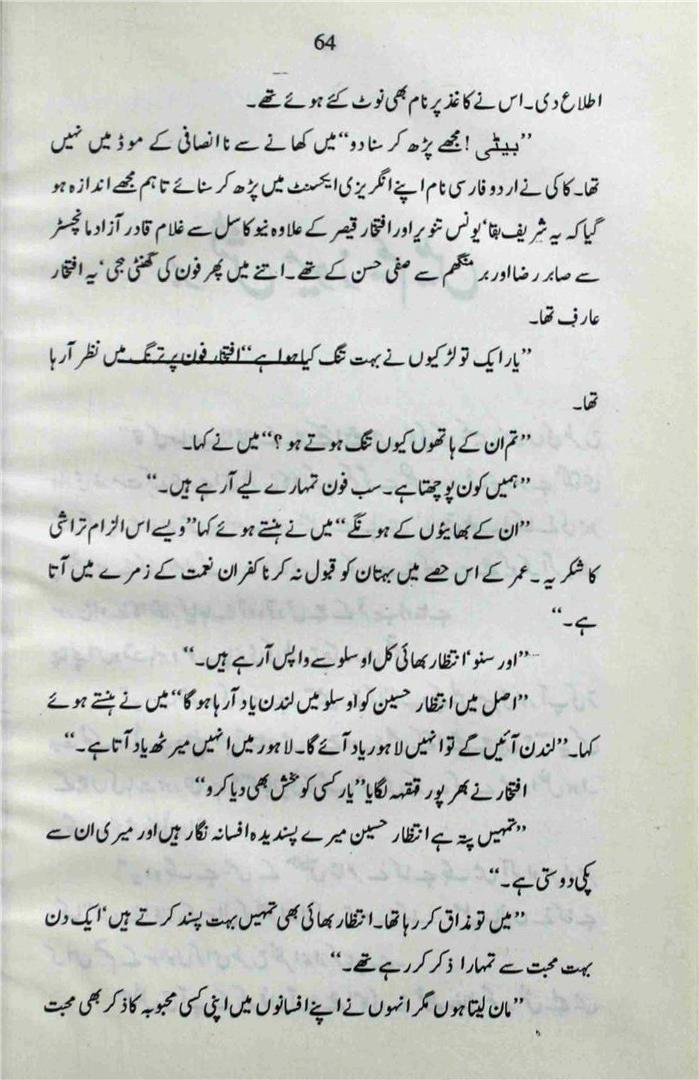 64
اطلاع دی۔ اس نے کاغذ پر نام بھی نوٹ کئے ہوئے تھے۔
”بیٹی! مجھے پڑھ کر سنا دو“ میں کھانے سے ناانصافی کے موڈ میں نہیں
تھا۔ کاکی نے اردو فارسی نام اپنے انگریزی ایکسنٹ میں پڑھ کر سنائے تاہم مجھے اندازہ ہو
گیا کہ یہ شریف بقا‘ یونس تنویر اور افتخار قیصر کے علاوہ نیو کاسل سے غلام قادر آزاد مانچسٹر
سے صابر رضا اور برمنگھم سے صفی حسن کے تھے۔ اتنے میں پھر فون کی گھنٹی بجی‘ یہ افتخار
عارف تھا۔
”یار ایک تو لڑکیوں نے بہت تنگ کیا ہوا ہے“ افتخار فون پر ترنگ میں نظر آ رہا
تھا۔
”تم ان کے ہاتھوں کیوں تنگ ہوتے ہو؟“ میں نے کہا۔
”ہمیں کون پوچھتا ہے۔ سب فون تمہارے لیے آ رہے ہیں۔“
”ان کے بھائیوں کے ہونگے“ میں نے ہنستے ہوئے کہا ”ویسے اس الزام تراشی
کا شکریہ۔ عمر کے اس حصے میں بہتان کو قبول نہ کرنا کفران نعمت کے زمرے میں آتا
ہے۔“
”اور سنو‘ انتظار بھائی کل اوسلو سے واپس آ رہے ہیں۔“
”اصل میں انتظار حسین کو اوسلو میں لندن یاد آ رہا ہو گا“ میں نے ہنستے ہوئے
کہا۔ ”لندن آئیں گے تو انہیں لاہور یاد آئے گا۔ لاہور میں انہیں میرٹھ یاد آتا ہے۔“
افتخار نے بھرپور قہقہہ لگایا ”یار کسی کو بخش بھی دیا کرو“
”تمہیں پتہ ہے انتظار حسین میرے پسندیدہ افسانہ نگار ہیں اور میری ان سے
پکی دوستی ہے۔“
”میں تو مذاق کر رہا تھا۔ انتظار بھائی بھی تمہیں بہت پسند کرتے ہیں‘ ایک دن
بہت محبت سے تمہارا ذکر کر رہے تھے۔“
”مان لیتا ہوں مگر انہوں نے اپنے افسانوں میں اپنی کسی محبوبہ کا ذکر بھی محبت